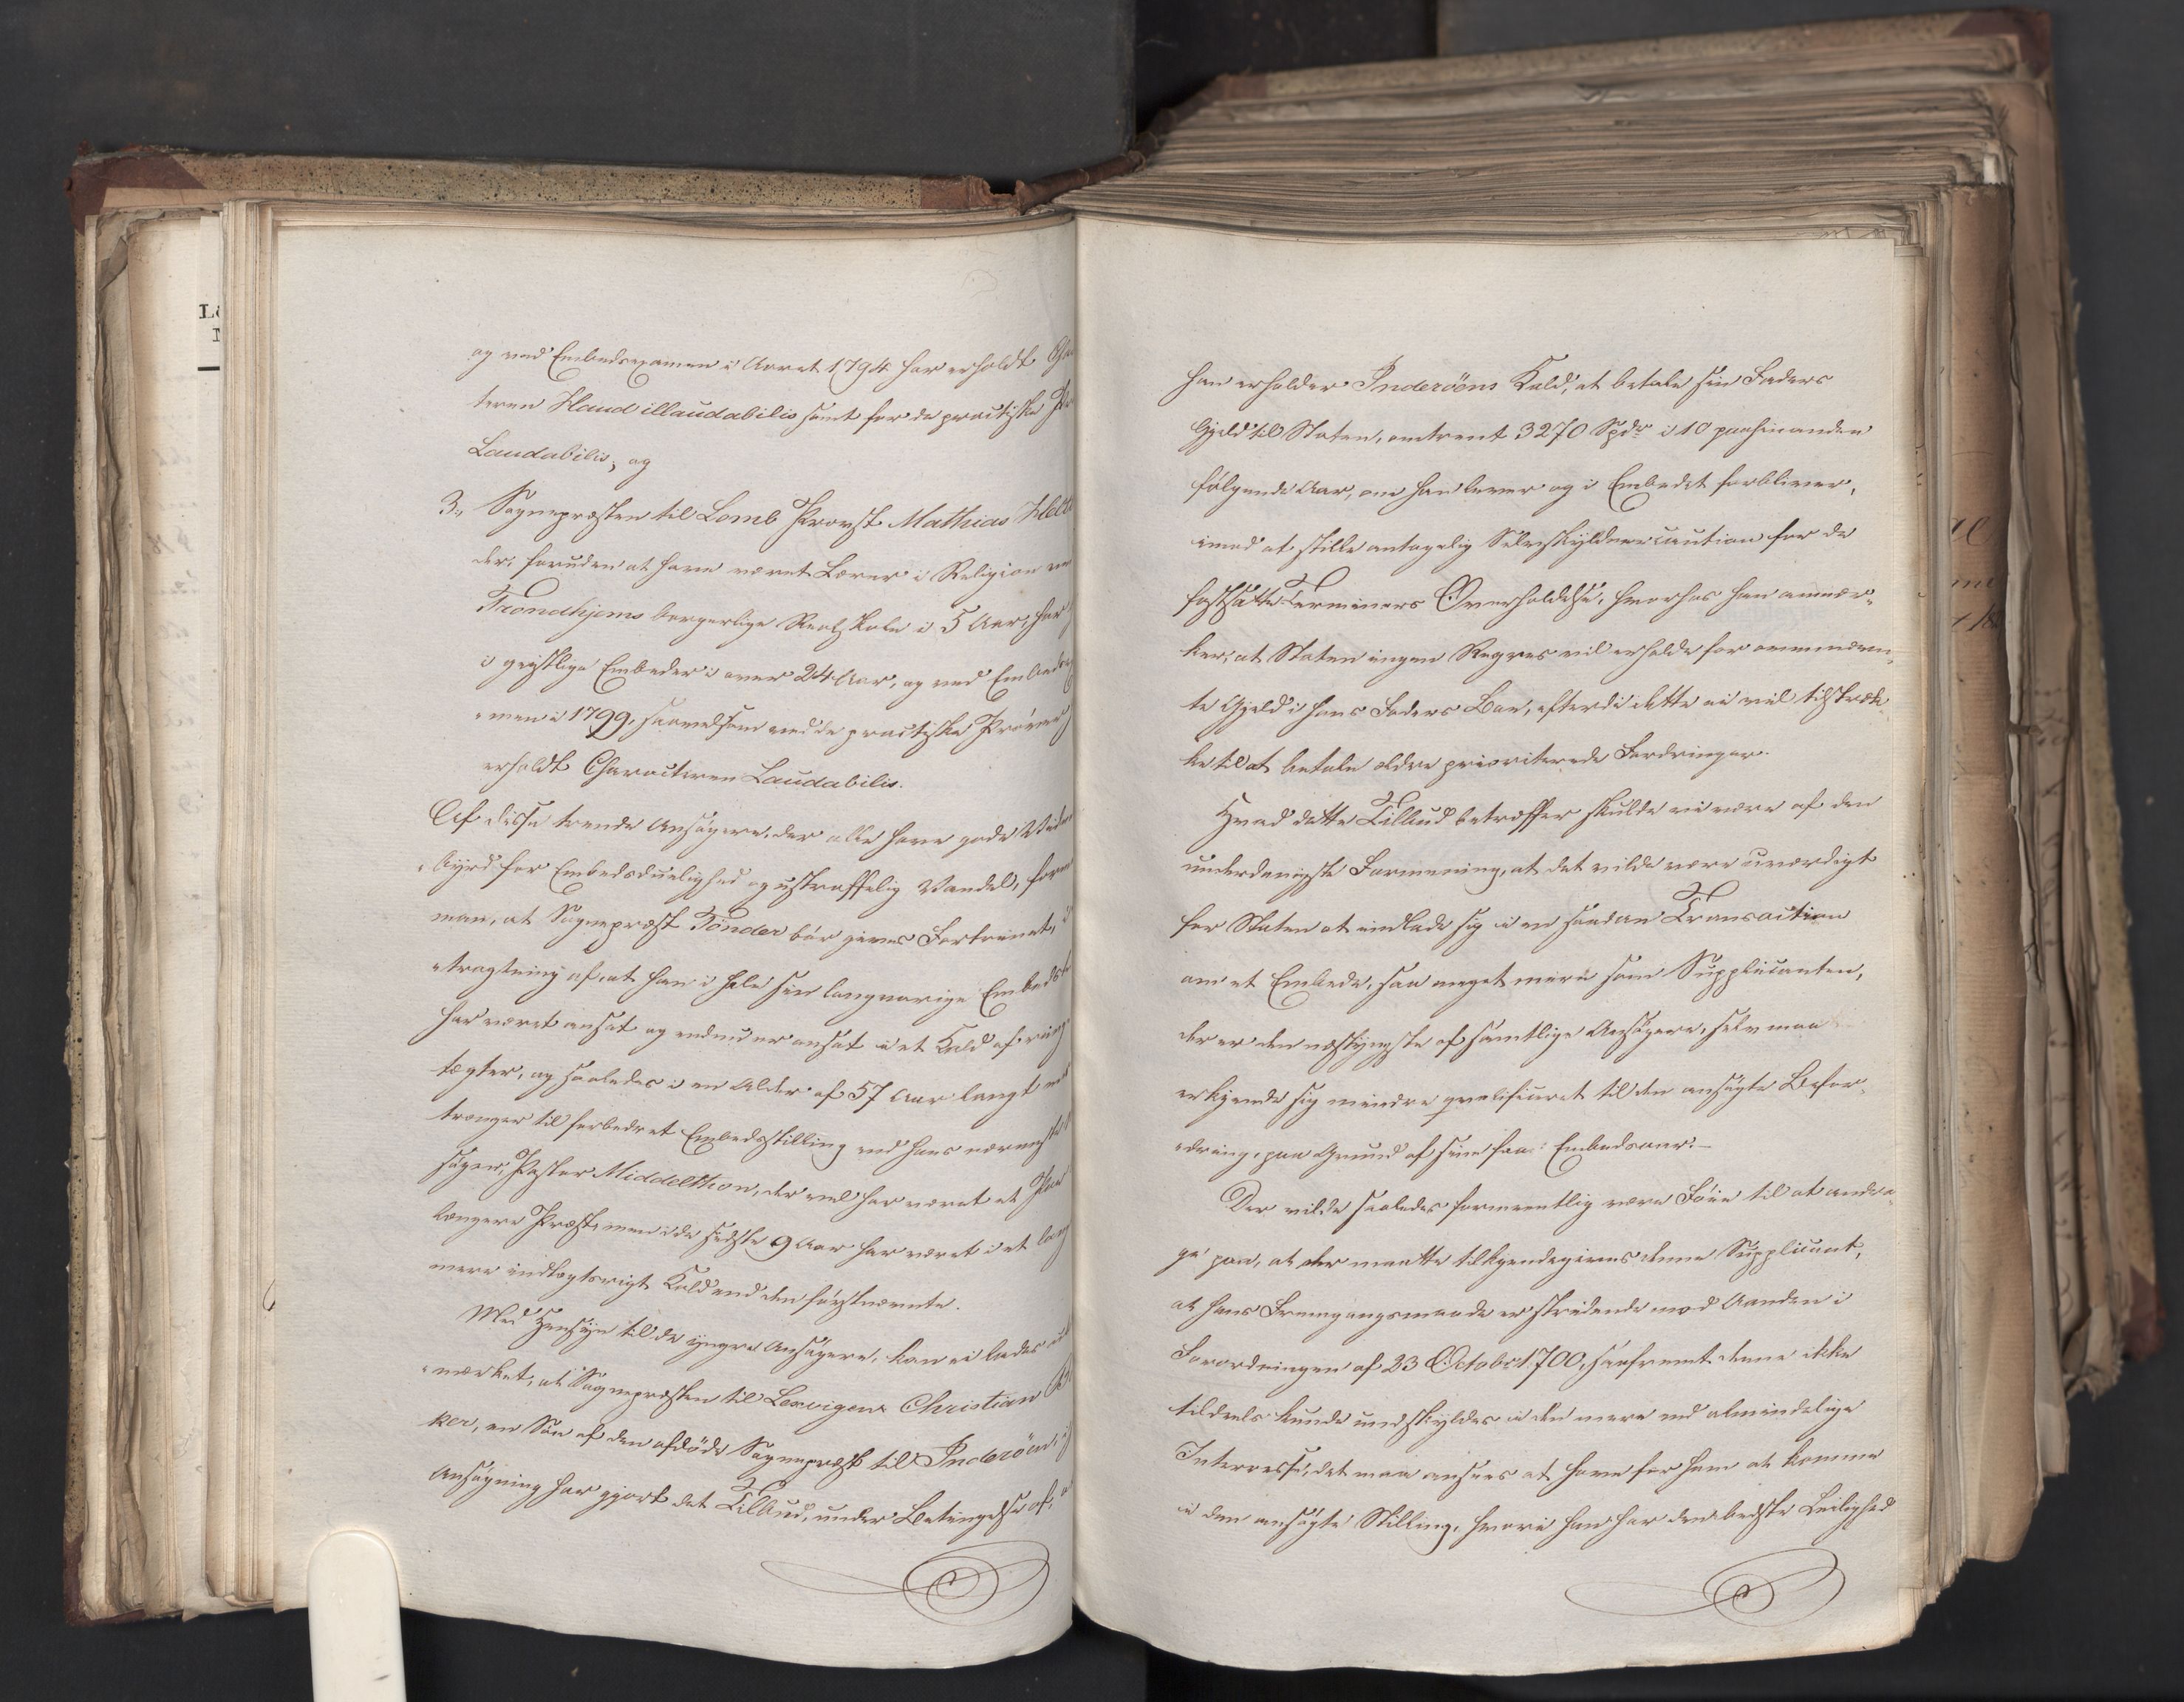 og ved Embedsexamen i Aaret 1794 har erholdt
teren Haud illaudabilis samt for de practiske
Laudabilis; og
3., Sognepræsten til Lomb Provst Mathias
der, foruden at have været Lærer i Religion
Trondhjems borgerlige Realskole i 5 Aar, har
i geistlige Embeder i over 24 Aar, og ved Embeds
men i 1799, saavelsom ved de practiske Prøver
erholdt Characteren Laudabilis.
Af disse trende Ansøgere, der alle have gode Vidnes
byrd for Embedsduelighed og ustraffelig Vandel, for
man, at Sognepræst Tønder bør gives Fortrinet,
tragtning af, at han i hele sin langvarige Embeds
har været ansat og endnu er ansat i et Kald af
tægter, og saaledes i en Alder af 57 Aar langt
trænger til forbedret Embedsstilling end hans nærmeste
søger, Pastor Middelthon, der vel har været et Par
længere Præst, men i de sidste 9 Aar har været i et
mere indtægtsrigt Kald end den førstnævnte.
Med Hensyn til de yngre Ansøgere, kan ei lades
mærket, at Sognepræsten til Lexvigen Christian
ker, en Søn af den afdøde Sognepræst til Inderøen, i
Ansøgning har gjort det Tilbud, under Betingelse af, at
han erholder Inderøens Kald, at betale sin Faders
Gjeld til Staten, omtrent 3270 Spdr i 10 paahinanden
følgende Aar, om han lever og i Embedet forbliver,
imod at stille antagelig Selvskyldnercaution for de
fastsatte Terminers Overholdelse, hvorhos han anmær-
ker, at Staten ingen Regres vil erholde for ommeldte
te Gjeld i hans Faders Boe, efterdi dette ei vil tilstræk-
ke til at betale ældre prioriterede Fordringer.
Hvad dette Tilbud betræffer skulde vi være af den
underdanigste Formening, at det vilde være uværdigt
for Staten at indlade sig i en saadan Transaction
om et Embede, saa meget mere som Supplicanten,
der er den næstyngste af samtlige Ansøgere, selv maa
erkjende sig mindre qvalificeret til den ansøgte Befor-
dring, paa Grund af sine faa Embedsaar.-
Der vilde saaledes formeentlig være Føie til at andra-
ge paa, at der maatte tilkjendegives denne Supplicant,
at hans Fremgangsmaade er stridende mod Aanden i
Forordningen af 23 Octobr 1700, saafremt denne ikke
tildeels kunde undskyldes i den mere end almindelige
Interesse, det maa ansees at have for ham at komme
i den ansøgte Stilling, hvori han har den bedste Leilighed